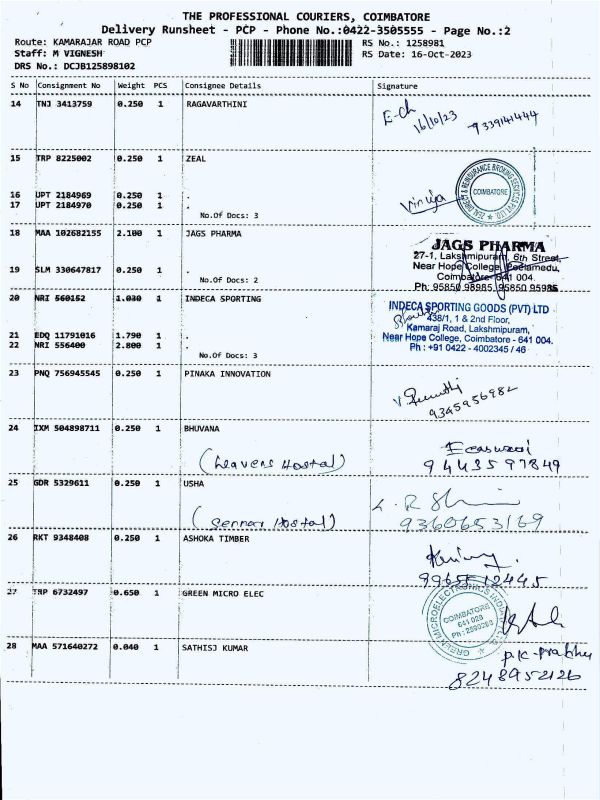 THE PROFESSIONAL COURIERS, COIMBATORE
Delivery Runsheet - PCP - Phone No.:0422-3505555 - Page No.:2
Route: KAMARAJAR ROAD PCP
RS No.: 1258981
Staff: M VIGNESH
RS Date: 16-Oct-2023
DRS No.: DCJB125898102
S No Consignment No Weight PCS Consignee Details Signature
14 TNJ 3413759 0.250 1 RAGAVARTHINI
E-Ch
16/10/23
9339141444
15 TRP 8225002 0.250 1 ZEAL
ZEAL INSURANCE BROKING SERVICES PVT LTD
COIMBATORE
16 UPT 2184969 0.250 1 .
17 UPT 2184970 0.250 1 .
No.Of Docs: 3
18 MAA 102682155 2.100 1 JAGS PHARMA
JAGS PHARMA
27-1, Lakshmipuram, 6th Street,
Near Hope College, Peelamedu,
Coimbatore - 641 004.
Ph: 95850 98985, 95850 95985
19 SLM 330647817 0.250 1 .
No.Of Docs: 2
20 NRI 560152 1.030 1 INDECA SPORTING
INDECA SPORTING GOODS (PVT) LTD
438/1, 1 & 2nd Floor,
Kamaraj Road, Lakshmipuram,
Near Hope College, Coimbatore - 641 004.
Ph : +91 0422 - 4002345 / 46
21 EDQ 11791016 1.790 1 .
22 NRI 556400 2.800 1 .
No.Of Docs: 3
23 PNQ 756945545 0.250 1 PINAKA INNOVATION
9345956982
24 IXM 504898711 0.250 1 BHUVANA
(Heavens Hostal)
Eeaswari
9443597849
25 GDR 5329611 0.250 1 USHA
(Sennar Hostal)
9360653169
26 RKT 9348408 0.250 1 ASHOKA TIMBER
9965512445
27 TRP 6732497 0.650 1 GREEN MICRO ELEC
COIMBATORE
641 028
28 MAA 571640272 0.040 1 SATHISJ KUMAR
P.K-Prabhu
8248952126